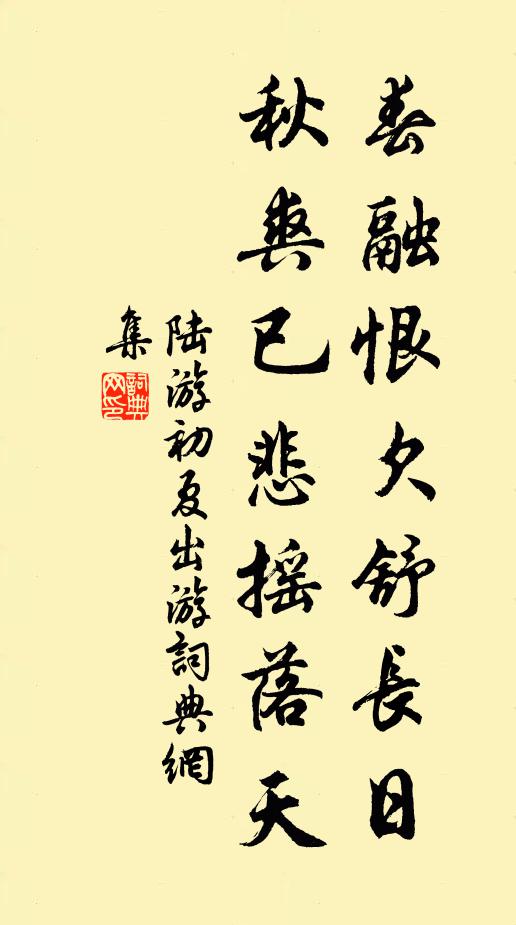 春融恨欠舒長日
秋爽已悲摇落天
陆游初夏出游詞典網
集
詞典
网印